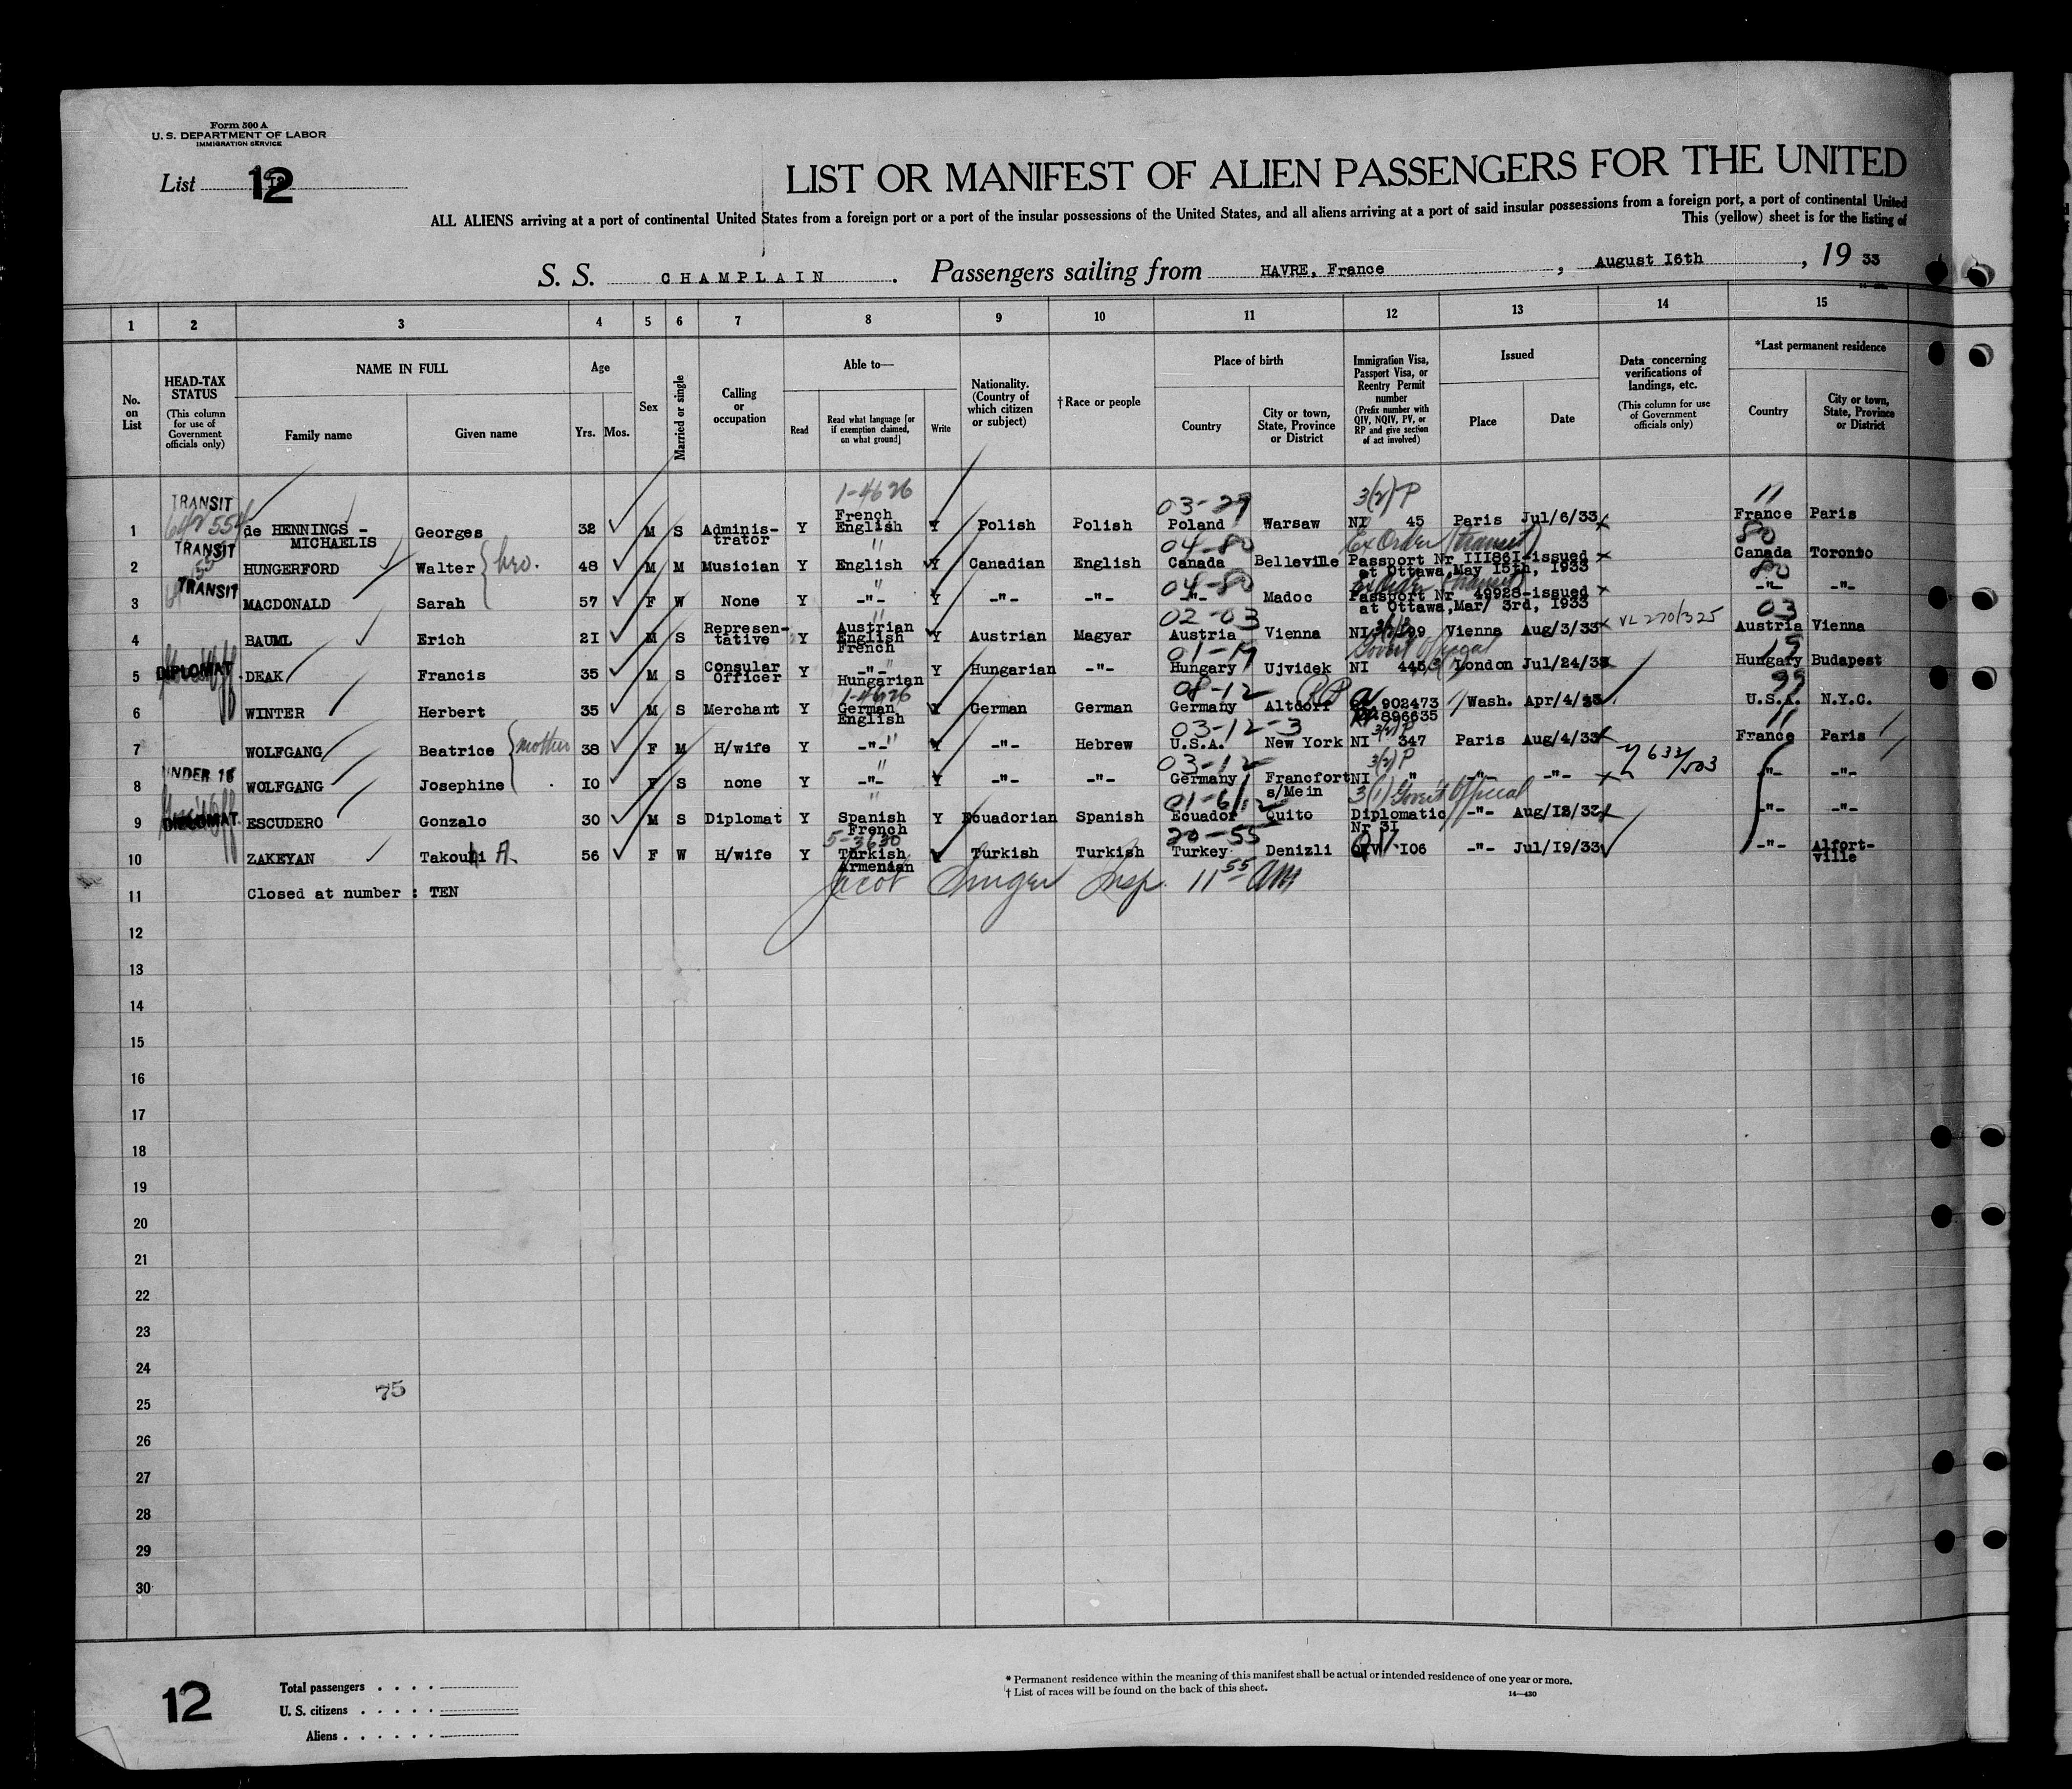 Form 500 A
U. S. DEPARTMENT OF LABOR
IMMIGRATION SERVICE
List 12
LIST OR MANIFEST OF ALIEN PASSENGERS FOR THE UNITED
ALL ALIENS arriving at a port of continental United States from a foreign port or a port of the insular possessions of the United States, and all aliens arriving at a port of said insular possessions from a foreign port, a port of continental United
This (yellow) sheet is for the listing of
S. S. CHAMPLAIN. Passengers sailing from HAVRE, France, August 16th, 19 33
1 2 3 4 5 6 7 8 9 10 11 12 13 14 15
No. on List
HEAD-TAX STATUS (This column for use of Government officials only)
NAME IN FULL Family name Given name
Age Yrs. Mos.
Sex
Married or single
Calling or occupation
Able to— Read Read what language [or if exemption claimed, on what ground] Write
Nationality. (Country of which citizen or subject)
† Race or people
Place of birth Country City or town, State, Province or District
Immigration Visa, Passport Visa, or Reentry Permit number (Prefix number with QIV, NQIV, PV, or RP and give section of act involved)
Issued Place Date
Data concerning verifications of landings, etc. (This column for use of Government officials only)
*Last permanent residence Country City or town, State, Province or District
1-4626 03-27 3(2)P 11
1 TRANSIT de HENNINGS - MICHAELIS Georges 32 M S Adminis-trator Y French English Y Polish Polish Poland Warsaw NI 45 Paris Jul/6/33 France Paris
" 04-80 Ex Order (transit) 80
2 TRANSIT HUNGERFORD Walter bro. 48 M M Musician Y English Y Canadian English Canada Belleville Passport Nr III861-issued at Ottawa, May 15th, 1933 Canada Toronto
" 04-80 (transit) 80
3 TRANSIT MACDONALD Sarah 57 F W None Y -"- Y -"- -"- -"- Madoc Passport Nr 49928-issued at Ottawa, Mar/ 3rd, 1933 -"- -"-
" 02-03 03
4 BAUML Erich 21 M S Represen-tative Y Austrian English French Y Austrian Magyar Austria Vienna NI 99 Vienna Aug/3/33 VL 270/325 Austria Vienna
" 01-19 Govert Official 15
5 DIPLOMAT DEAK Francis 35 M S Consular officer Y -"- Hungarian Y Hungarian -"- Hungary Ujvidek NI 445 London Jul/24/33 Hungary Budapest
1-4626 08-12 RP 99
6 WINTER Herbert 35 M S Merchant Y German English Y German German Germany Altdorf 902473 896635 Wash. Apr/4/33 U.S.A. N.Y.C.
" 03-12-3 3(2)P 11
7 WOLFGANG Beatrice mother 38 F M H/wife Y -"- Y -"- Hebrew U.S.A. New York NI 347 Paris Aug/4/33 France Paris
" 03-12 3(2)P
8 UNDER 16 WOLFGANG Josephine 10 F S none Y -"- Y -"- -"- Germany Francfort s/Mein NI " -"- -"- 632/503 -"- -"-
" 01-61 3(1) Govert Official
9 DIPLOMAT ESCUDERO Gonzalo 30 M S Diplomat Y Spanish French Y Ecuadorian Spanish Ecuador Quito Diplomatic Nr 31 -"- Aug/12/33 -"- -"-
5-3630 20-55
10 ZAKEYAN Takouhi A. 56 F W H/wife Y Turkish Armenian Y Turkish Turkish Turkey Denizli QIV 106 -"- Jul/19/33 -"- Alfort-ville
11 Closed at number : TEN Insp. 11 55 AM
12
13
14
15
16
17
18
19
20
21
22
23
24
75
25
26
27
28
29
30
12
Total passengers . . . .
U. S. citizens . . . . .
Aliens . . . . . .
* Permanent residence within the meaning of this manifest shall be actual or intended residence of one year or more.
† List of races will be found on the back of this sheet.
14—430